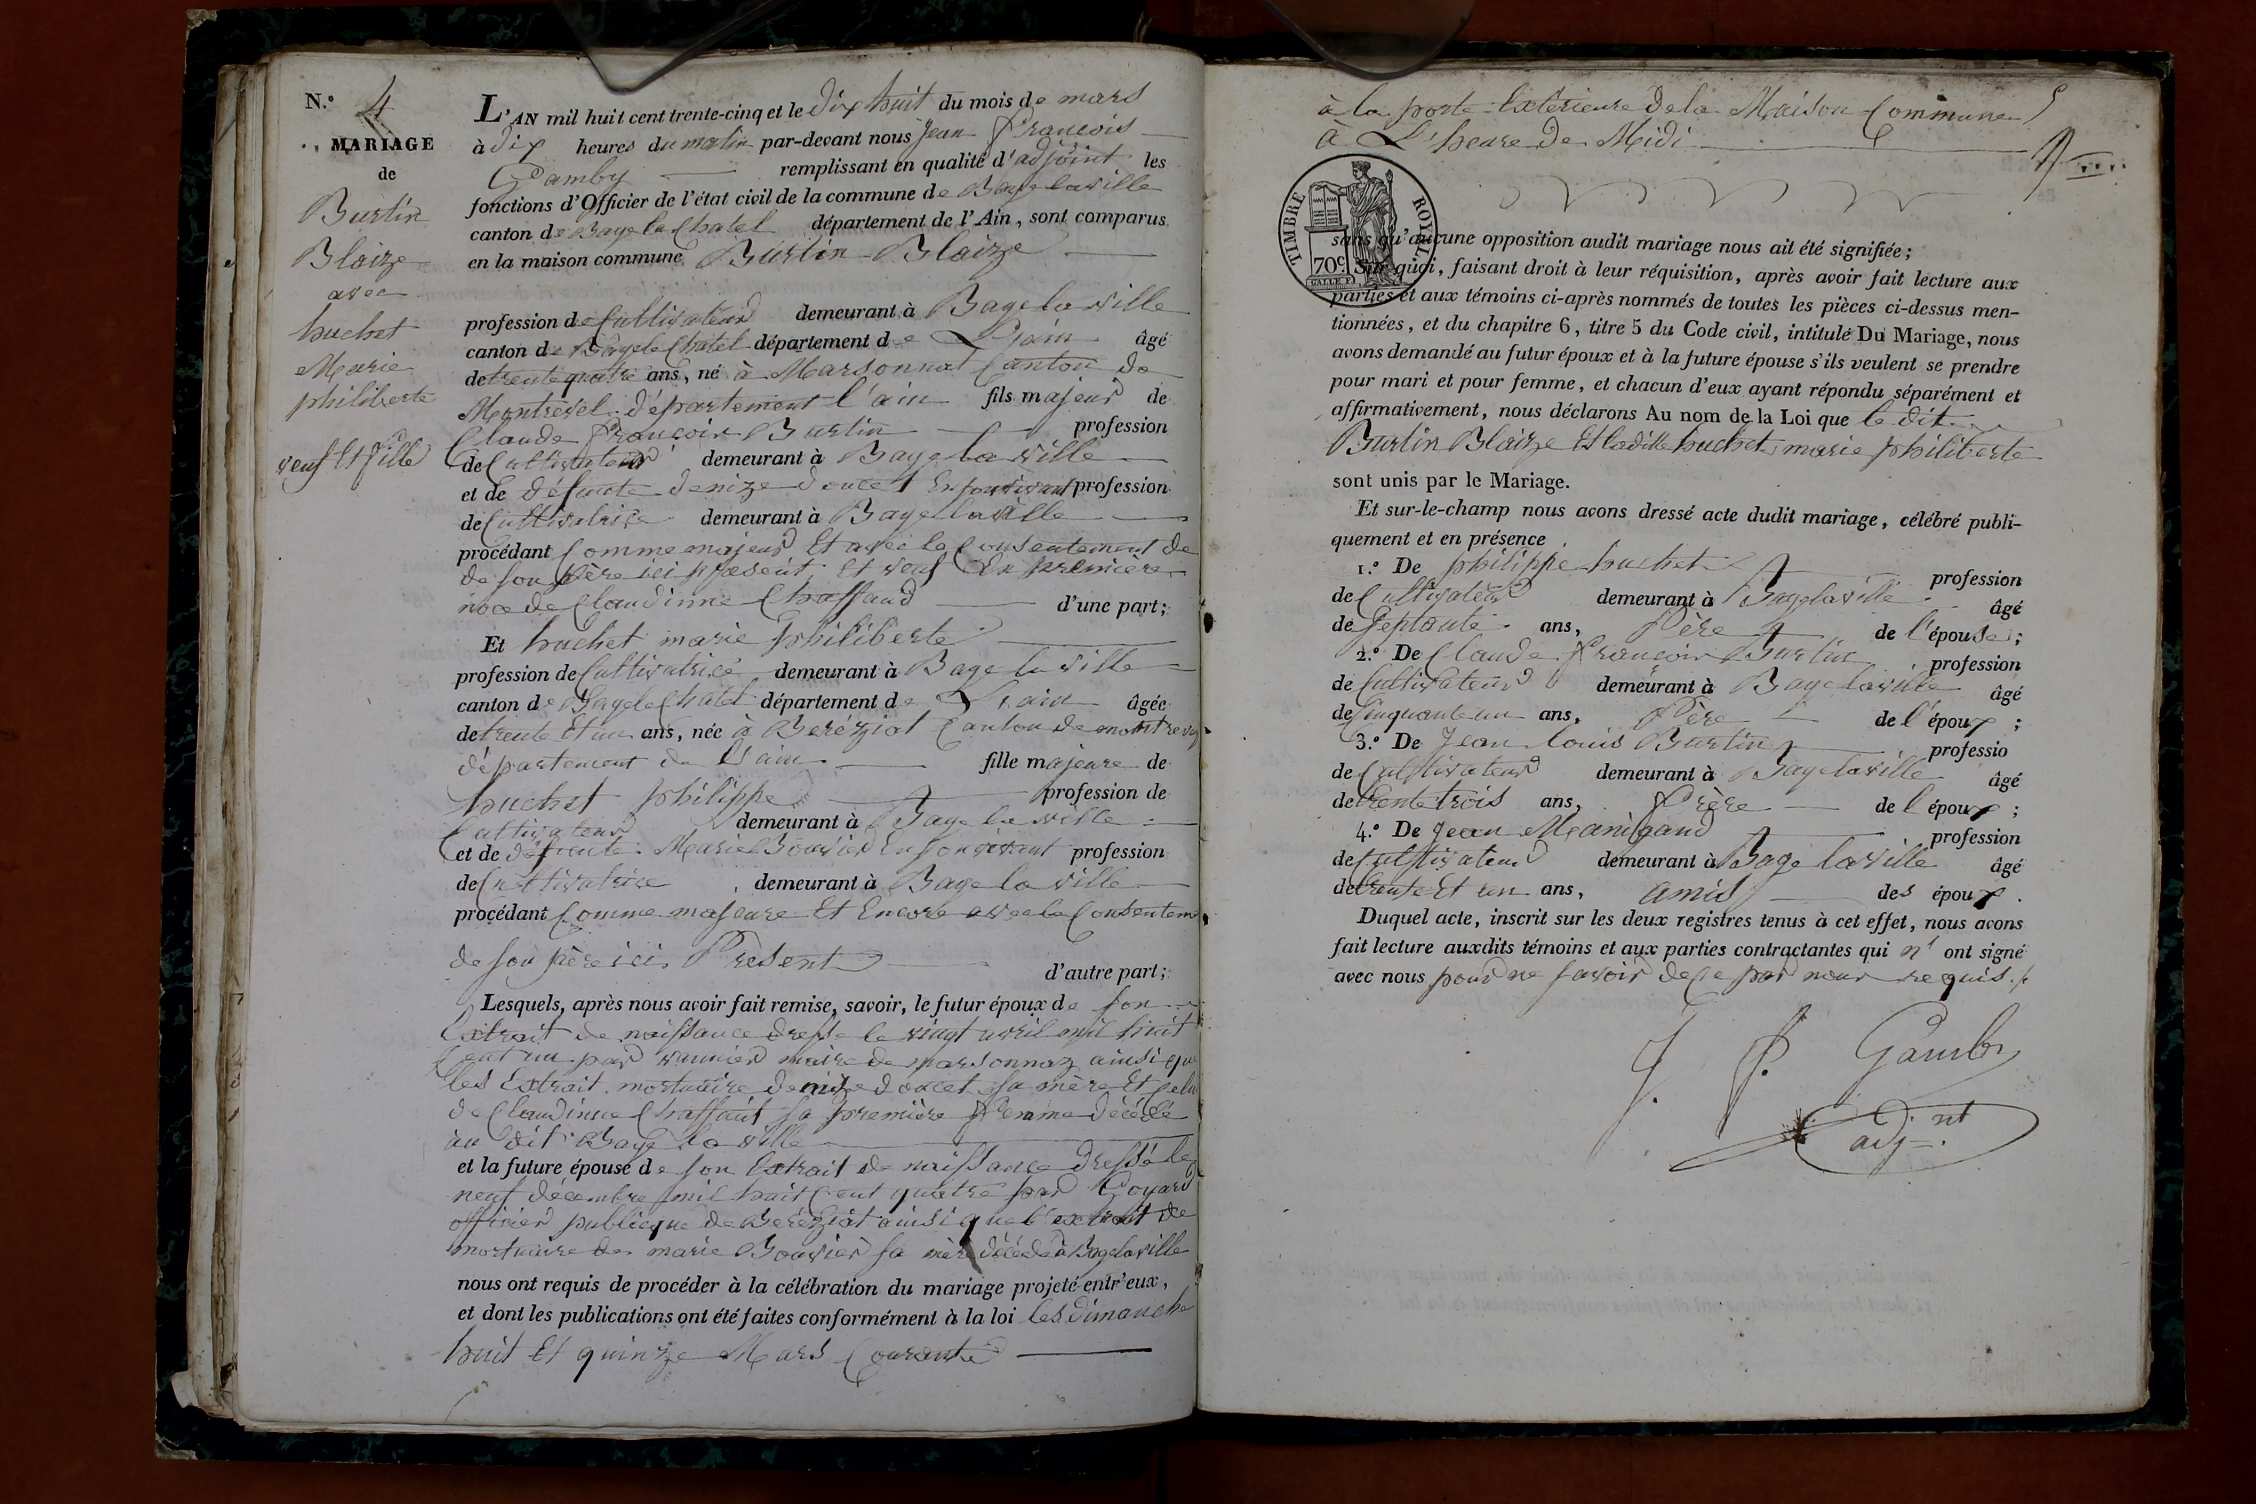 N.º 4
MARIAGE
de
Burtin
Blaize
avec
huchet
Marie
philiberte
veuf Et fille
L'AN mil huit cent trente-cinq et le dix huit du mois de mars
à dix heures du matin par-devant nous Jean François
Gamby remplissant en qualité d'adjoint les
fonctions d'Officier de l'état civil de la commune de Bage laville
canton de Bage le Chatel département de l'Ain, sont comparus
en la maison commune Burtin Blaize
profession de Cultivateur demeurant à Bage la ville
canton de Bage le Chatel département de L'ain âgé
de trente quatre ans, né à Marsonnat Canton de
Montrevel département l'ain fils majeur de
Claude François Burtin profession
de Cultivateur demeurant à Bage la ville
et de défunte denize doucet En sonvivant profession
de Cultivatrice demeurant à Bage la ville
procédant Comme majeur Et avec le Consentement de
de son père ici présent et veuf En première
noce de Claudinne Chaffaud d'une part;
Et huchet marie philiberte
profession de Cultivatrice demeurant à Bage la ville
canton de Bage le Chatel département de L'ain âgée
de trente Et un ans, née à Beréziat Canton de montrevel
département de L'ain fille majeure de
huchet philippe profession de
Cultivateur demeurant à Bage la ville
et de défunte Marie Bouvier En sonvivant profession
de Cultivatrice demeurant à Bage la ville
procédant Comme majeure Et Encore avec le Consentem
de son père ici Présent d'autre part;
Lesquels, après nous avoir fait remise, savoir, le futur époux de son
Extrait de naissance dressé le vingt avril mil huit
Cent un par maire de marsonnaz ainsi que
les Extrait mortuaire denize doucet sa mère Et celui
de Claudinne Chaffaut sa première femme décédé
au dit Bage la ville
et la future épouse de son Extrait de naissance dressé le
neuf décembre mil huit Cent quatre par Goyard
officier publicque de Beréziat ainsi que l'extrait de
mortuaire de marie Bouvier sa mère décédé à Bage laville
nous ont requis de procéder à la célébration du mariage projeté entr'eux,
et dont les publications ont été faites conformément à la loi les dimanche
huit Et quinze Mars Courente
à la porte Extérieure de la Maison Commune
à L'heure de Midi
TIMBRE ROYAL
70 c.
sans qu'aucune opposition audit mariage nous ait été signifiée;
Sur quoi, faisant droit à leur réquisition, après avoir fait lecture aux
parties et aux témoins ci-après nommés de toutes les pièces ci-dessus men-
tionnées, et du chapitre 6, titre 5 du Code civil, intitulé Du Mariage, nous
avons demandé au futur époux et à la future épouse s'ils veulent se prendre
pour mari et pour femme, et chacun d'eux ayant répondu séparément et
affirmativement, nous déclarons Au nom de la Loi que le dit
Burtin Blaize Et ladite huchet marie philiberte
sont unis par le Mariage.
Et sur-le-champ nous avons dressé acte dudit mariage, célébré publi-
quement et en présence
1.º De philippe huchet profession
de Cultivateur demeurant à Bage laville âgé
de septante ans, Père de l'épouse;
2.º De Claude François Burtin profession
de Cultivateur demeurant à Bage laville âgé
de Cinquante un ans, Père de l'époux;
3.º De Jean Louis Burtin professio
de Cultivateur demeurant à Bage laville âgé
de trente trois ans, Frère de l'époux;
4.º De Jean Manigand profession
de Cultivateur demeurant à Bage laville âgé
de trente Et un ans, amis des époux.
Duquel acte, inscrit sur les deux registres tenus à cet effet, nous avons
fait lecture auxdits témoins et aux parties contractantes qui n' ont signé
avec nous pour ne savoir de ce par nous requis.
J. F. Gamby
adjnt